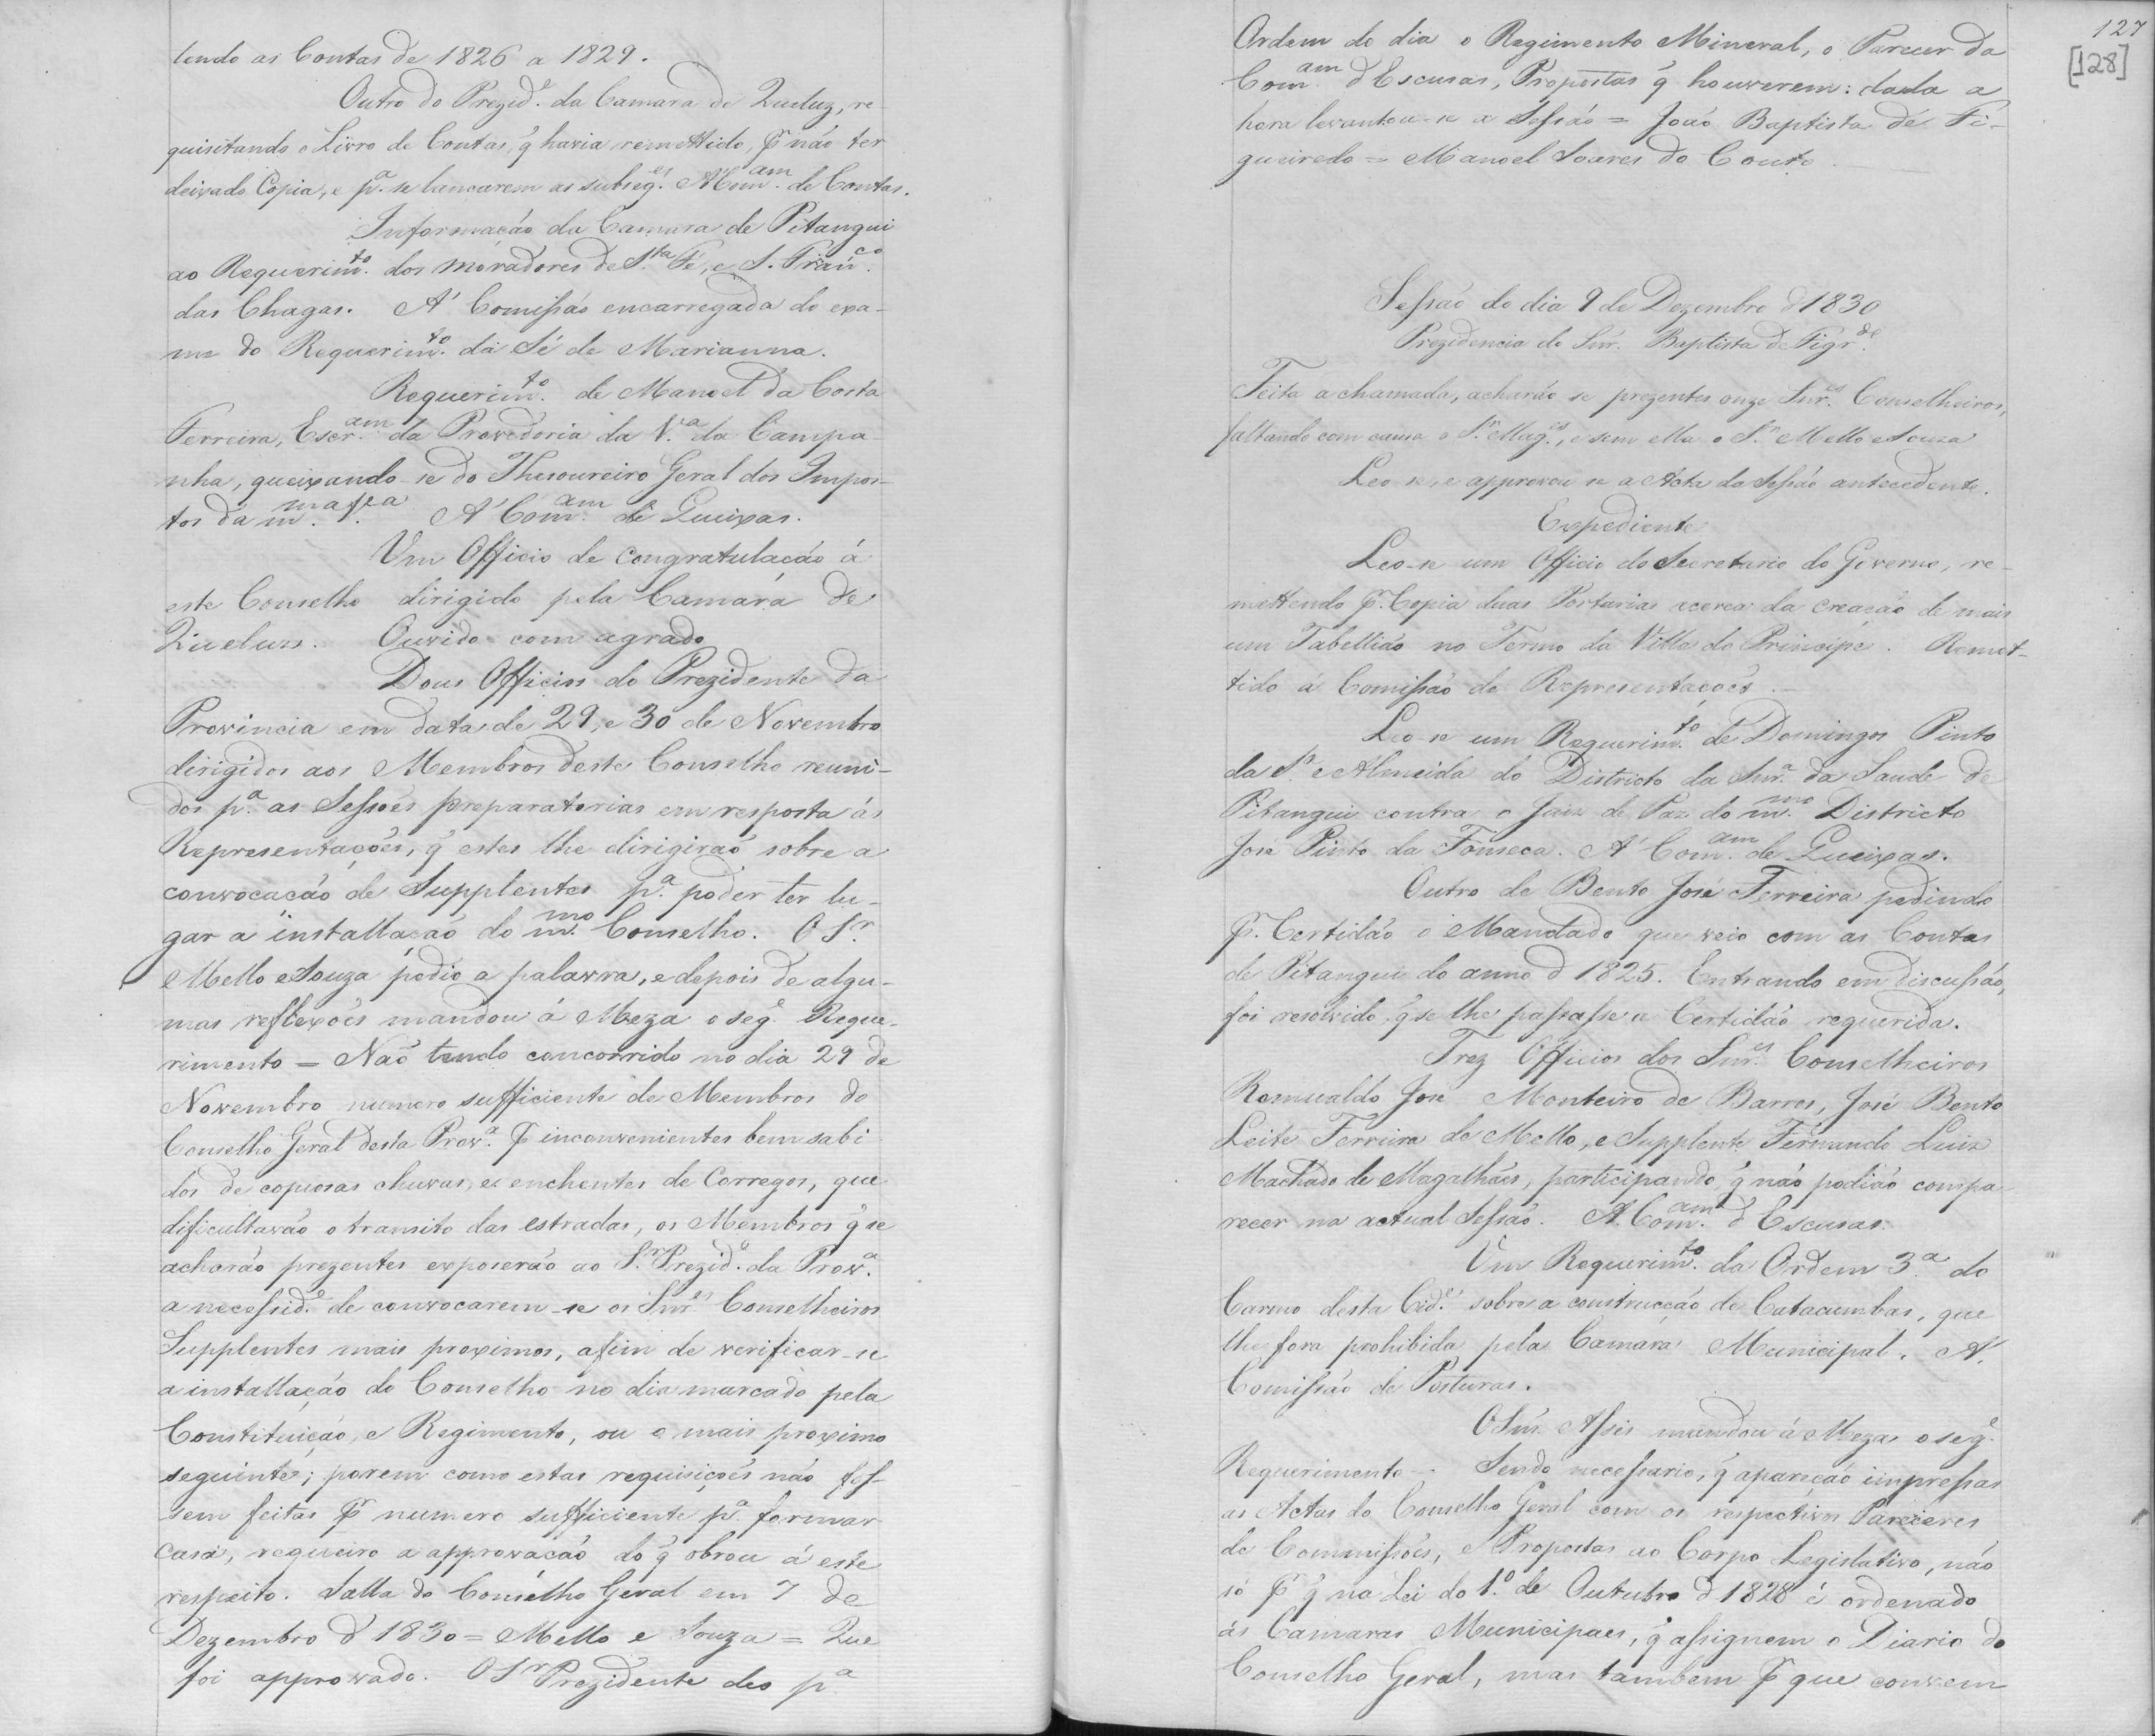 tendo as Contas de 1826 a 1829.
Outro do Prezid.e da Camara de Queluz, re-
quisitando o Livro de Contas, q̃ havia remettido, pr não ter
deixado Copia, e p.a se lancarem as subseg.es Arem.am de Contas.
Informação da Camara de Pitangui
ao Requerim.to dos moradores de S.ta Fé, e S. Fran.co
das Chagas. A' Comissão encarregada do exa-
me do Requerim.to da Sé de Marianna.
Requerim.to de Manoel da Costa
Ferreira, Escr.am da Provedoria da V.a da Campa-
nha, queixando-se do Thesoureiro Geral dos Impos-
tos da m.ma A' Com.am de Queixas.
Um Officio de congratulação á
este Conselho dirigido pela Camara de
Queluz. Ouvido com agrado
Dous Officios do Prezidente da
Provincia em data de 29, e 30 de Novembro
dirigidos aos Membros deste Conselho reuni-
dos p.a as Sessões preparatorias em resposta ás
Representações, q̃ estes lhe dirigirão sobre a
convocacão de Supplentes p.a poder ter lu-
gar a installação do m.mo Conselho. O S.r
Mello e Souza pedio a palavra, e depois de algu-
mas reflexões mandou á Meza o seg.e Reque-
rimento = Não tendo concorrido no dia 29 de
Novembro numero sufficiente de Membros do
Conselho Geral desta Prov.a pr inconvenientes bem sabi-
dos de copiosas chuvas, e enchentes de Corregos, que
dificultavão o transito das estradas, os Membros q̃ se
acharão prezentes exposerão ao S.r Prezid.e da Prov.a
a necessid.e de convocarem-se os Snr.es Conselheiros
Supplentes mais proximos, afim de verificar-se
a installação do Conselho no dia marcado pela
Constituição, e Regimento, ou o mais proximo
seguinte; porem como estas requisições não fos-
sem feitas pr numero sufficiente p.a formar
casa, requeiro a approvacão do q̃ obrou á este
respeito. Salla do Conselho Geral em 7 de
Dezembro d 1830 = Mello e Souza = Que
foi approvado. O S.r Prezidente deo p.a
127
[128]
Ordem do dia o Regimento Mineral, o Parecer da
Com.am d'Escusas, Propostas q̃ houverem: dada a
hora levantou-se a Sessão = João Baptista de Fi-
gueiredo = Manoel Soares do Couto
Sessão do dia 9 de Dezembro d 1830
Prezidencia do Snr. Baptista de Figr.do
Feita a chamada, acharão se prezentes onze Snr.es Conselheiros,
faltando com causa o S.r Mag.es, e sem ella o S.r Mello e Souza
Leo-se, e approvou se a Acta da Sessão antecedente.
Expediente
Leo-se um Officio do Secretario do Governo, re-
mettendo pr Copia duas Portarias acerca da creação de mais
um Tabellião no Termo da Villa do Principe. Remet-
tido á Comissão de Representações.
Leo-se um Requerim.to de Domingos Pinto
da S.a e Almeida do Districto da Snr.a da Saude de
Pitangui contra o Juiz de Paz do m.mo Districto
José Pinto da Fonseca. A' Com.am de Queixas.
Outro de Bento José Ferreira pedindo
pr Certidão o Mandado que veio com as Contas
de Pitangui do anno d 1825. Entrando em discussão,
foi resolvido, q̃ se lhe passasse a Certidão requerida.
Trez Officios dos Snr.es Conselheiros
Romualdo José Monteiro de Barros, José Bento
Leite Ferreira de Mello, e Supplente Fernando Luiz
Machado de Magalhães, participando, q̃ não podião compa-
recer na actual Sessão. A' Com.am d'Escusas.
Um Requerim.to da Ordem 3.a do
Carmo desta Cid.e sobre a construcção de Catacumbas, que
lhe fora prohibida pela Camara Municipal. A'
Comissão de Posturas.
O Snr. Assis mandou á Meza o seg.e
Requerimento = Sendo necessario, q̃ apareção impressas
as Actas do Conselho Geral com os respectivos Pareceres
de Commissões, e Propostas ao Corpo Legislativo, não
só pr q̃ na Lei do 1.o de Outubro d 1828 é ordenado
ás Camaras Municipaes, q̃ assignem o Diario do
Conselho Geral, mas tambem pr que convem